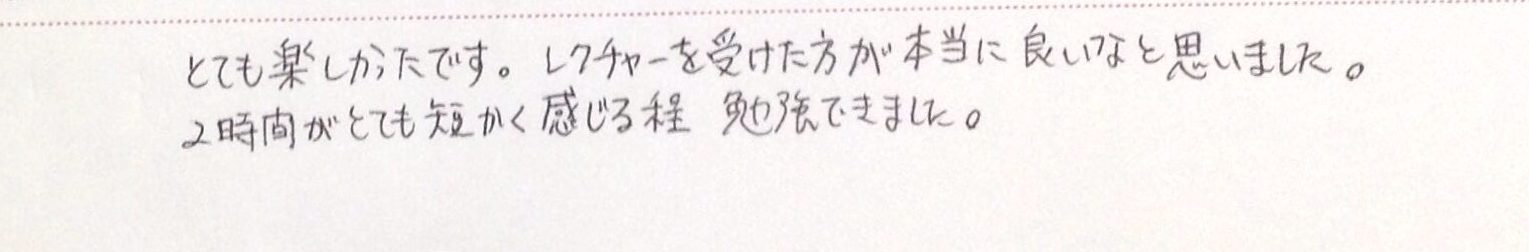 とても楽しかったです。レクチャーを受けた方が本当に良いなと思いました。
2時間がとても短かく感じる程 勉強できました。